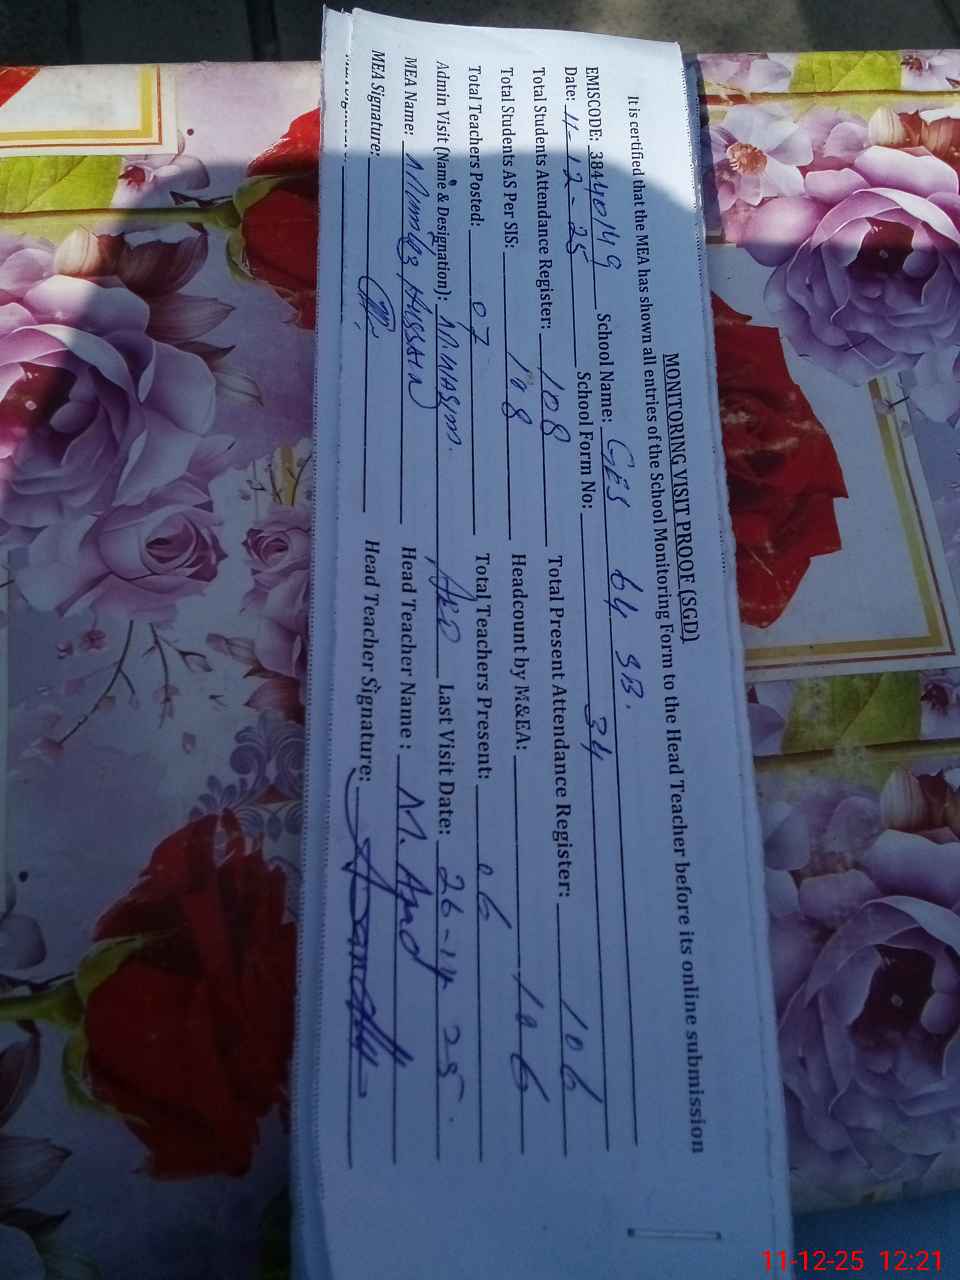 MONITORING VISIT PROOF (SGD)
It is certified that the MEA has shown all entries of the School Monitoring Form to the Head Teacher before its online submission
EMISCODE: 38444049 School Name: GES 64 SB.
Date: 11-12-25 School Form No: 34
Total Students Attendance Register: 108 Total Present Attendance Register: 106
Total Students AS Per SIS: 108 Headcount by M&EA: 106
Total Teachers Posted: 07 Total Teachers Present: 06
Admin Visit (Name & Designation): M.WASIM. AEO Last Visit Date: 26-11-25.
MEA Name: HUSSAIN Head Teacher Name: M.
MEA Signature: Head Teacher Signature:
11-12-25 12:21